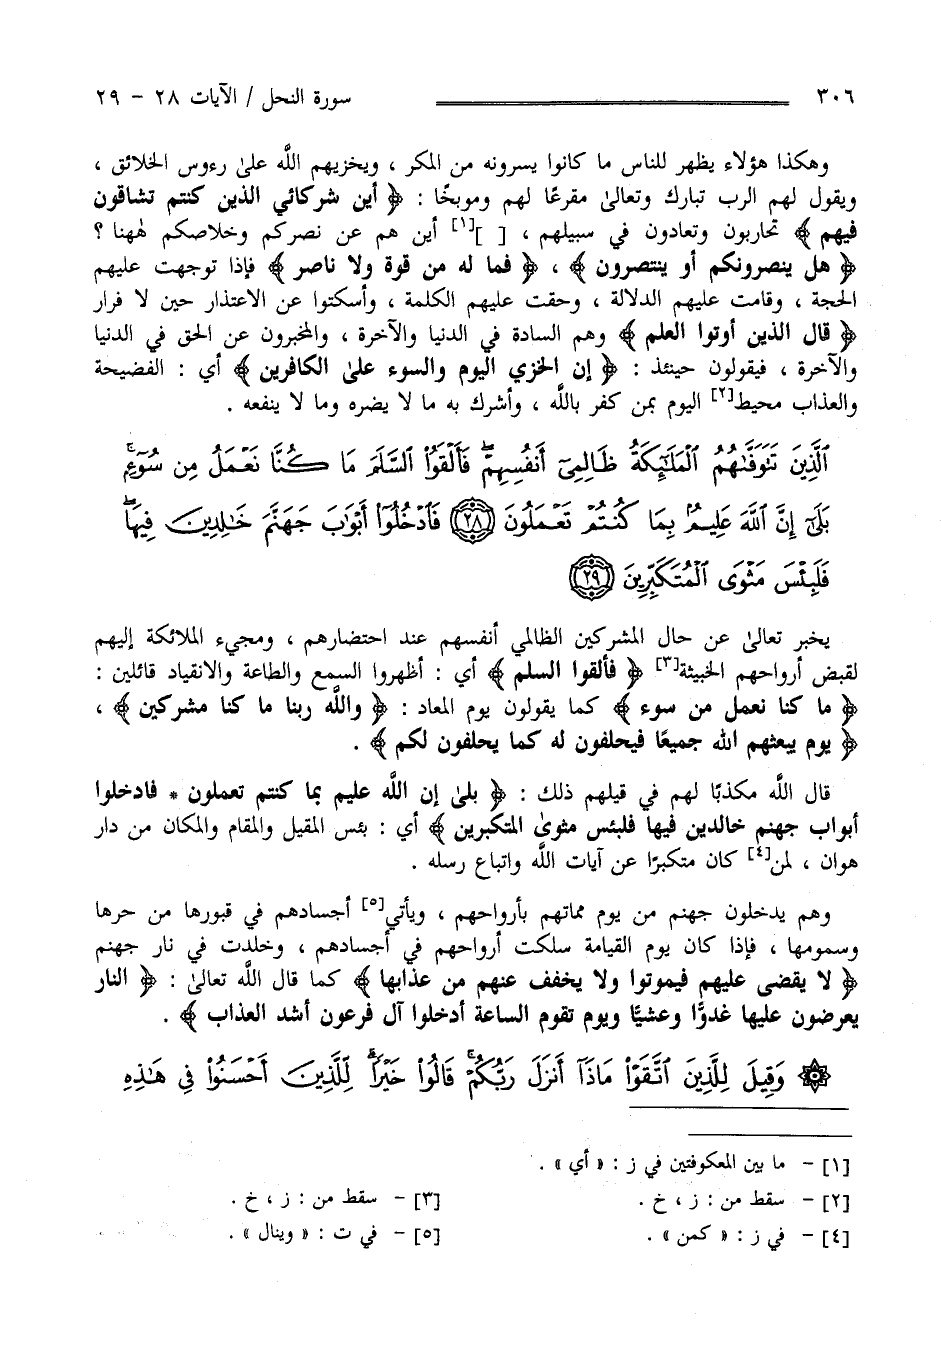 ٣٠٦ سورة النحل / الآيات ٢٨ - ٢٩
وهكذا هؤلاء يظهر للناس ما كانوا يسرونه من المكر ، ويخزيهم اللَّه علىٰ رءوس الخلائق ،
ويقول لهم الرب تبارك وتعالىٰ مقرعًا لهم وموبخًا : ﴿ أين شركائي الذين كنتم تشاقون
فيهم ﴾ تحاربون وتعادون في سبيلهم ، [ ][١] أين هم عن نصركم وخلاصكم هٰهنا ؟
﴿ هل ينصرونكم أو ينتصرون ﴾ ، ﴿ فما له من قوة ولا ناصر ﴾ فإذا توجهت عليهم
الحجة ، وقامت عليهم الدلالة ، وحقت عليهم الكلمة ، وأسكتوا عن الاعتذار حين لا فرار
﴿ قال الذين أوتوا العلم ﴾ وهم السادة في الدنيا والآخرة ، والمخبرون عن الحق في الدنيا
والآخرة ، فيقولون حينئذ : ﴿ إن الخزي اليوم والسوء علىٰ الكافرين ﴾ أي : الفضيحة
والعذاب محيط[٢] اليوم بمن كفر باللَّه ، وأشرك به ما لا يضره وما لا ينفعه .
ٱلَّذِينَ تَتَوَفَّىٰهُمُ ٱلْمَلَـٰٓئِكَةُ ظَالِمِىٓ أَنفُسِهِمْ ۖ فَأَلْقَوُا۟ ٱلسَّلَمَ مَا كُنَّا نَعْمَلُ مِن سُوٓءٍۭ ۚ
بَلَىٰٓ إِنَّ ٱللَّهَ عَلِيمٌۢ بِمَا كُنتُمْ تَعْمَلُونَ ﴿٢٨﴾ فَٱدْخُلُوٓا۟ أَبْوَٰبَ جَهَنَّمَ خَـٰلِدِينَ فِيهَا ۖ
فَلَبِئْسَ مَثْوَى ٱلْمُتَكَبِّرِينَ ﴿٢٩﴾
يخبر تعالىٰ عن حال المشركين الظالمي أنفسهم عند احتضارهم ، ومجيء الملائكة إليهم
لقبض أرواحهم الخبيثة[٣] ﴿ فألقوا السلم ﴾ أي : أظهروا السمع والطاعة والانقياد قائلين :
﴿ ما كنا نعمل من سوء ﴾ كما يقولون يوم المعاد : ﴿ واللَّه ربنا ما كنا مشركين ﴾ ،
﴿ يوم يبعثهم اللَّه جميعًا فيحلفون له كما يحلفون لكم ﴾ .
قال اللَّه مكذبًا لهم في قيلهم ذلك : ﴿ بلىٰ إن اللَّه عليم بما كنتم تعملون * فادخلوا
أبواب جهنم خالدين فيها فلبئس مثوىٰ المتكبرين ﴾ أي : بئس المقيل والمقام والمكان من دار
هوان ، لمن[٤] كان متكبرًا عن آيات اللَّه واتباع رسله .
وهم يدخلون جهنم من يوم مماتهم بأرواحهم ، ويأتي[٥] أجسادهم في قبورها من حرها
وسمومها ، فإذا كان يوم القيامة سلكت أرواحهم في أجسادهم ، وخلدت في نار جهنم
﴿ لا يقضى عليهم فيموتوا ولا يخفف عنهم من عذابها ﴾ كما قال اللَّه تعالىٰ : ﴿ النار
يعرضون عليها غدوًّا وعشيًّا ويوم تقوم الساعة أدخلوا آل فرعون أشد العذاب ﴾ .
۞ وَقِيلَ لِلَّذِينَ ٱتَّقَوْا۟ مَاذَآ أَنزَلَ رَبُّكُمْ ۚ قَالُوا۟ خَيْرًا ۗ لِّلَّذِينَ أَحْسَنُوا۟ فِى هَـٰذِهِ
[١] - ما بين المعكوفتين في ز : « أي » .
[٢] - سقط من : ز ، خ . [٣] - سقط من : ز ، خ .
[٤] - في ز : « كمن » . [٥] - في ت : « وينال » .